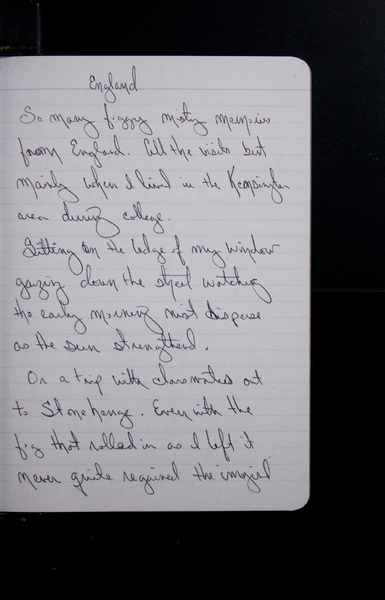 England
So many foggy misty memories
from England. All the visits but
mainly when I lived in the Kensington
area during college.
Sitting on the ledge of my window
gazing down the street watching
the early morning mist disperse
as the sun strengthened.
Or a trip with classmates out
to Stonehenge. Even with the
fog that rolled in as I left it
never quite regained the